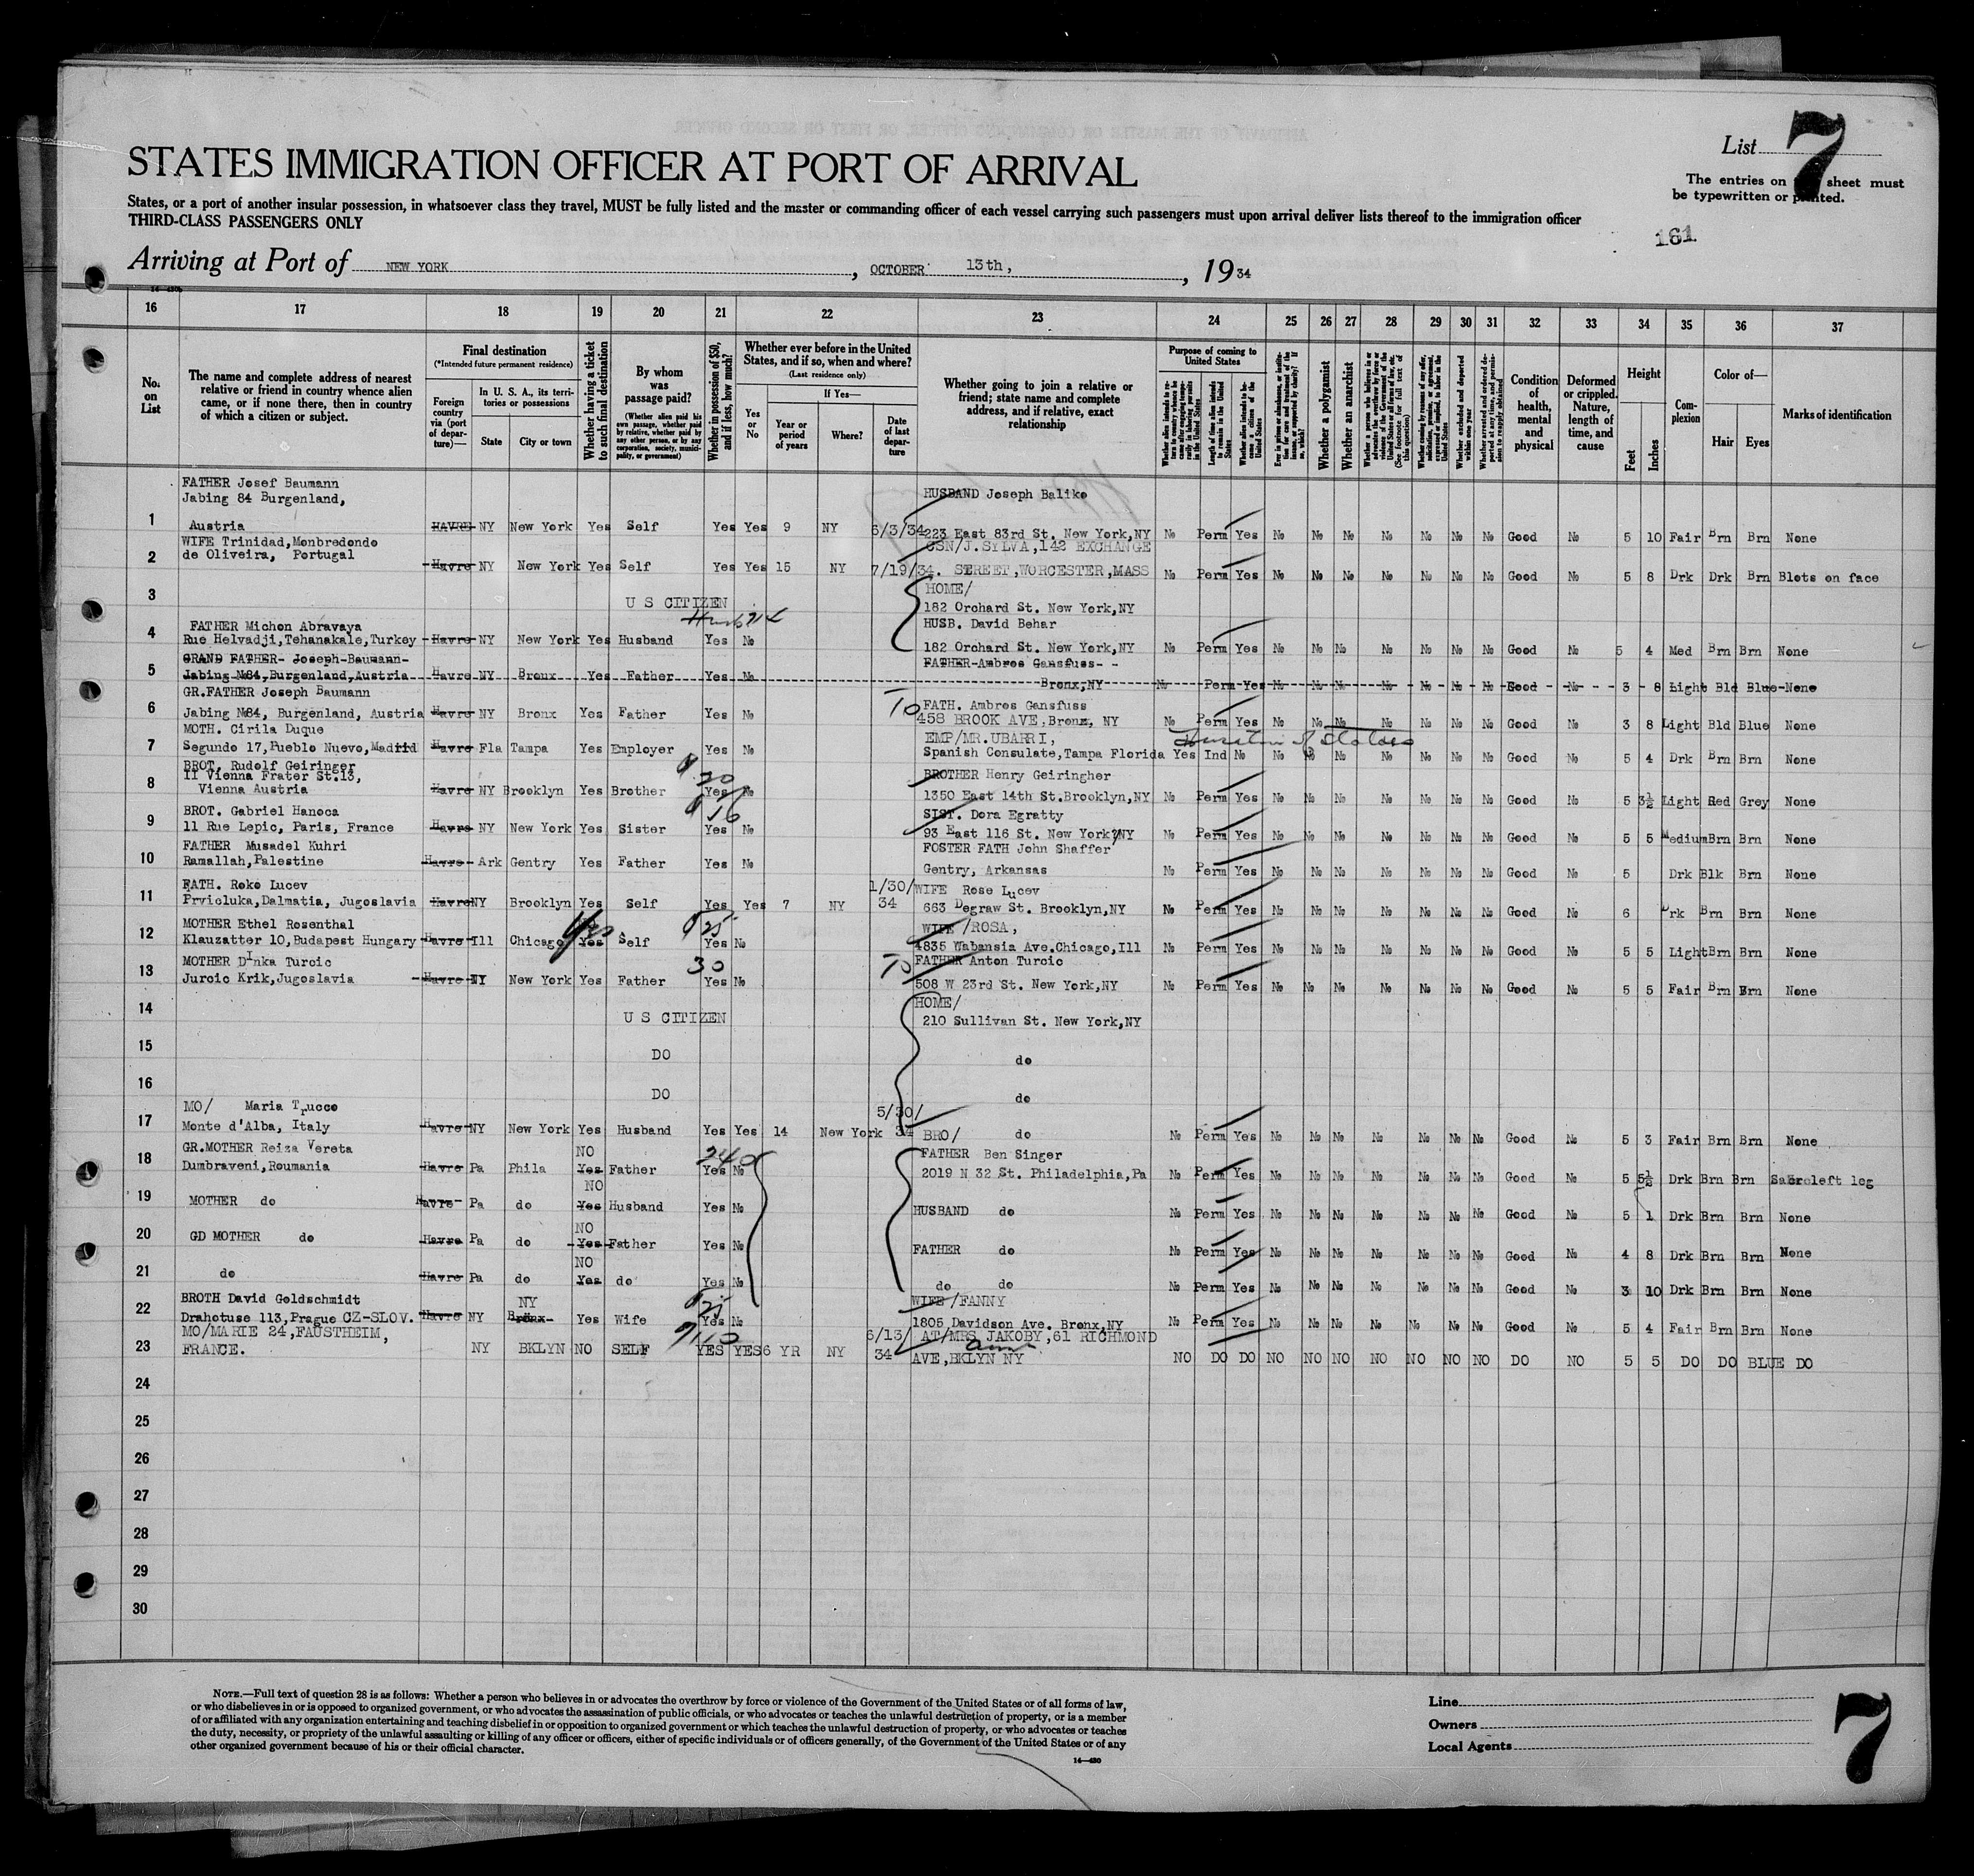 STATES IMMIGRATION OFFICER AT PORT OF ARRIVAL
List 7
The entries on sheet must
be typewritten or printed.
States, or a port of another insular possession, in whatsoever class they travel, MUST be fully listed and the master or commanding officer of each vessel carrying such passengers must upon arrival deliver lists thereof to the immigration officer
THIRD-CLASS PASSENGERS ONLY
181
Arriving at Port of NEW YORK, OCTOBER 13th, 1934
16 17 18 19 20 21 22 23 24 25 26 27 28 29 30 31 32 33 34 35 36 37
No. on List
The name and complete address of nearest relative or friend in country whence alien came, or if none there, then in country of which a citizen or subject.
Final destination
(*Intended future permanent residence)
Foreign country via (port of departure)—
In U. S. A., its territories or possessions
State City or town
Whether having a ticket to such final destination
By whom was passage paid?
(Whether alien paid his own passage, whether paid by relative, whether paid by any other person, or by any corporation, society, municipality, or government)
Whether in possession of $50, and if less, how much?
Whether ever before in the United States, and if so, when and where?
(Last residence only)
Yes or No
If Yes—
Year or period of years
Where?
Date of last departure
Whether going to join a relative or friend; state name and complete address, and if relative, exact relationship
Purpose of coming to United States
Length of time alien intends to remain in the United States
Whether alien intends to become a citizen of the United States
Whether a polygamist
Whether an anarchist
Condition of health, mental and physical
Deformed or crippled. Nature, length of time, and cause
Height
Feet Inches
Complexion
Color of—
Hair Eyes
Marks of identification
FATHER Josef Baumann
Jabing 84 Burgenland, HUSBAND Joseph Balike
1 Austria HAVRE NY New York Yes Self Yes Yes 9 NY 6/3/34 223 East 83rd St. New York,NY No Perm Yes No No No No No No No Good No 5 10 Fair Brn Brn None
WIFE Trinidad,Monbredondo CSN/J.SYLVA,142 EXCHANGE
2 de Oliveira, Portugal Havre NY New York Yes Self Yes Yes 15 NY 7/19/34. STREET,WORCESTER,MASS No Perm Yes No No No No No No No Good No 5 8 Drk Drk Brn Blots on face
HOME/
3 U S CITIZEN 182 Orchard St. New York,NY
FATHER Michon Abravaya HUSB. David Behar
4 Rue Helvadji,Tehanakale,Turkey Havre NY New York Yes Husband Yes No 182 Orchard St. New York,NY No Perm Yes No No No No No No No Good No 5 4 Med Brn Brn None
GRAND FATHER- Joseph-Baumann- FATHER-Ambros Gansfuss- -
5 Jabing №84,Burgenland,Austria Havre NY Bronx Yes Father Yes No Bronx,NY No Perm Yes No No No No No No No Good No 3 8 Light Bld Blue None
GR.FATHER Joseph Baumann To FATH. Ambros Gansfuss
6 Jabing №84, Burgenland, Austria Havre NY Bronx Yes Father Yes No 458 BROOK AVE,Bronx, NY No Perm Yes No No No No No No No Good No 3 8 Light Bld Blue None
MOTH. Cirila Duque EMP/MR.UBARRI,
7 Segundo 17,Pueblo Nuevo,Madrid Havre Fla Tampa Yes Employer Yes No Spanish Consulate,Tampa Florida Yes Ind No No No No No No No No Good No 5 4 Drk Brn Brn None
BROT, Rudolf Geiringer
II Vienna Frater St.13, $20 BROTHER Henry Geiringher
8 Vienna Austria Havre NY Brooklyn Yes Brother Yes No 1350 East 14th St.Brooklyn,NY No Perm Yes No No No No No No No Good No 5 3½ Light Red Grey None
BROT. Gabriel Hanoca $16 SIST. Dora Egratty
9 11 Rue Lepic, Paris, France Havre NY New York Yes Sister Yes No 93 East 116 St. New York NY No Perm Yes No No No No No No No Good No 5 5 Medium Brn Brn None
FATHER Musadel Kuhri FOSTER FATH John Shaffer
10 Ramallah,Palestine Havre Ark Gentry Yes Father Yes No Gentry, Arkansas No Perm Yes No No No No No No No Good No 5 Drk Blk Brn None
FATH. Roko Lucev 1/30/ WIFE Rose Lucev
11 Prvicluka,Dalmatia, Jugoslavia Havre NY Brooklyn Yes Self Yes Yes 7 NY 34 663 Degraw St. Brooklyn,NY No Perm Yes No No No No No No No Good No 6 Drk Brn Brn None
MOTHER Ethel Rosenthal Yes $25 WIFE /ROSA,
12 Klauzatter 10,Budapest Hungary Havre Ill Chicago Yes Self Yes No 4835 Wabansia Ave.Chicago,Ill No Perm Yes No No No No No No No Good No 5 5 Light Brn Brn None
MOTHER Dinka Turcic 30 To FATHER Anton Turcic
13 Jurcic Krik,Jugoslavia Havre NY New York Yes Father Yes No 508 W 23rd St. New York,NY No Perm Yes No No No No No No No Good No 5 5 Fair Brn Brn None
HOME/
14 U S CITIZEN 210 Sullivan St. New York,NY
15 DO do
16 DO do
MO/ Maria Trucco 5/30/
17 Monte d'Alba, Italy Havre NY New York Yes Husband Yes Yes 14 New York 34 BRO/ do No Perm Yes No No No No No No No Good No 5 3 Fair Brn Brn None
GR.MOTHER Reiza Vereta NO 240 FATHER Ben Singer
18 Dumbraveni,Roumania Havre Pa Phila Yes Father Yes No 2019 N 32 St. Philadelphia,Pa No Perm Yes No No No No No No No Good No 5 5½ Drk Brn Brn left leg
NO
19 MOTHER do Havre Pa do Yes Husband Yes No HUSBAND do No Perm Yes No No No No No No No Good No 5 1 Drk Brn Brn None
NO
20 GD MOTHER do Havre Pa do Yes Father Yes No FATHER do No Perm Yes No No No No No No No Good No 4 8 Drk Brn Brn None
NO
21 do Havre Pa do Yes do Yes No do do No Perm Yes No No No No No No No Good No 3 10 Drk Brn Brn None
BROTH David Goldschmidt NY $25 WIFE /FANNY
22 Drahotuse 113,Prague CZ-SLOV. Havre NY Bronx Yes Wife Yes No 1805 Davidson Ave. Bronx,NY No Perm Yes No No No No No No No Good No 5 4 Fair Brn Brn None
MO/MARIE 24,FAUSTHEIM, $110 6/13/ AT/MRS JAKOBY,61 RICHMOND
23 FRANCE. NY BKLYN NO SELF YES YES 6 YR NY 34 aunt AVE,BKLYN NY NO DO DO NO NO NO NO NO NO NO DO NO 5 5 DO DO BLUE DO
24
25
26
27
28
29
30
NOTE.—Full text of question 28 is as follows: Whether a person who believes in or advocates the overthrow by force or violence of the Government of the United States or of all forms of law,
or who disbelieves in or is opposed to organized government, or who advocates the assassination of public officials, or who advocates or teaches the unlawful destruction of property, or is a member
of or affiliated with any organization entertaining and teaching disbelief in or opposition to organized government or which teaches the unlawful destruction of property, or who advocates or teaches
the duty, necessity, or propriety of the unlawful assaulting or killing of any officer or officers, either of specific individuals or of officers generally, of the Government of the United States or of any
other organized government because of his or their official character.
14—430
Line
Owners
Local Agents
7